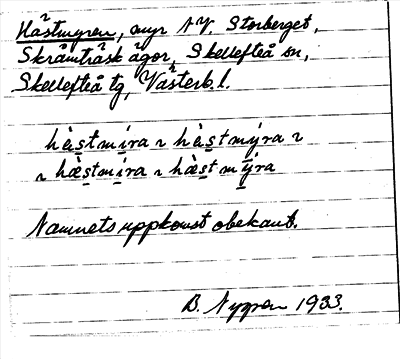 Hästmyren, myr NV. Storberget,
Skråmträsk ägor, Skellefteå sn,
Skellefteå tg, Västerb. l.
hèstmíra ~ hèstmýra ~
~ hæ̀stmíra ~ hæ̀stmýra
Namnets uppkomst obekant.
B. Nygren 1933.